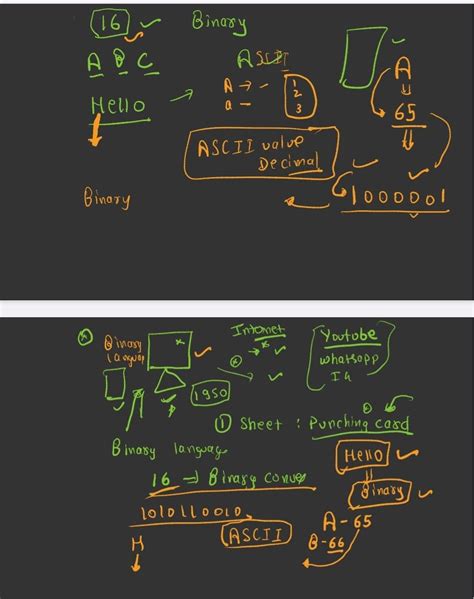 16 Binary
A B C ASCII
A → 1
a - 2
3
A
65
Hello →
ASCII value
Decimal
Binary
1000001
Binary
languag
Internet
Youtube
whatsapp
IG
1950
① Sheet : Punching card
Binary language
Hello
16 → Binary conver
Binary
1010110010
A - 65
H
ASCII
B - 66